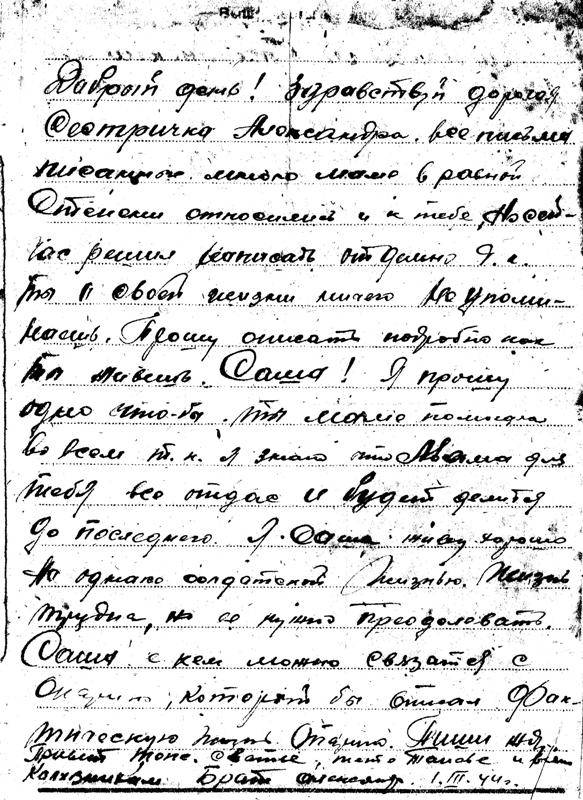 Добрый день! Здравствуй дорогая
Сестричка Александра. все письма
писанные мною маме в равной
Степени относились и к тебе, Но сей-
час решил написать отдельно т.к.
ты о своей жизни ничего не упоми-
наешь. Прошу описать подробно как
ты живешь. Саша! Я прошу
одно что-бы ты маме помогала
во всем т.к. я знаю что Мама для
тебя все отдас и будет делится
до последнего. Я Саша живу хорошо
но однако солдатской жизнью. Жизнь
трудна, но ее нужно преодолевать.
Саша с кем можно связатся с
который бы описал Фак-
тическую жизнь Пиши жду
Привет Тоне. и всем
Брат Александр. 1.III.44г.